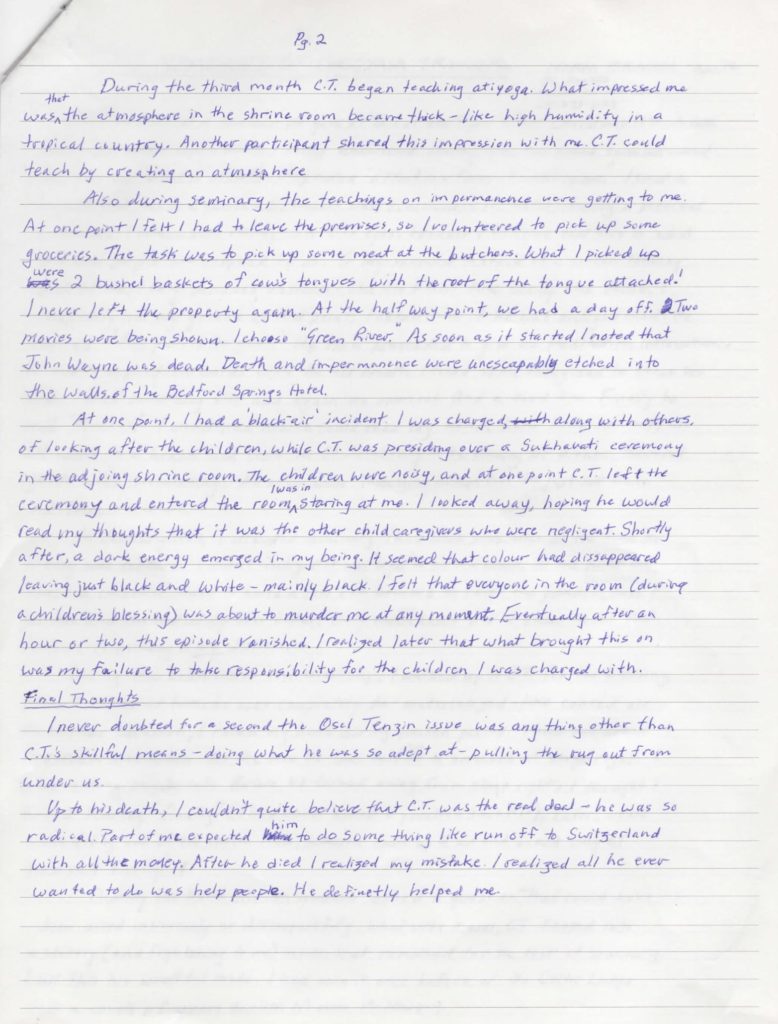 Pg. 2
During the third month C.T. began teaching atiyoga. What impressed me
that
was the atmosphere in the shrine room became thick - like high humidity in a
tropical country. Another participant shared this impression with me. C.T. could
teach by creating an atmosphere
Also during seminary, the teachings on impermanence were getting to me.
At one point I felt I had to leave the premises, so I volunteered to pick up some
groceries. The task was to pick up some meat at the butchers. What I picked up
were
was 2 bushel baskets of cow's tongues with the root of the tongue attached!
I never left the property again. At the half way point, we had a day off. Two
movies were being shown. I choose "Green River." As soon as it started I noted that
John Wayne was dead. Death and impermanence were unescapably etched into
the walls of the Bedford Springs Hotel.
At one point, I had a 'black-air' incident. I was charged, with along with others,
of looking after the children, while C.T. was presiding over a Sukhavati ceremony
in the adjoing shrine room. The children were noisy, and at one point C.T. left the
I was in
ceremony and entered the room staring at me. I looked away, hoping he would
read my thoughts that it was the other child caregivers who were negligent. Shortly
after, a dark energy emerged in my being. It seemed that colour had dissappeared
leaving just black and white - mainly black. I felt that everyone in the room (during
a children's blessing) was about to murder me at any moment. Eventually after an
hour or two, this episode vanished. I realized later that what brought this on
was my failure to take responsibility for the children I was charged with.
Final Thoughts
I never doubted for a second the Osel Tenzin issue was any thing other than
C.T.'s skillful means - doing what he was so adept at - pulling the rug out from
under us.
Up to his death, I couldn't quite believe that C.T. was the real deal - he was so
him
radical. Part of me expected to do some thing like run off to Switzerland
with all the money. After he died I realized my mistake. I realized all he ever
wanted to do was help people. He definetly helped me.